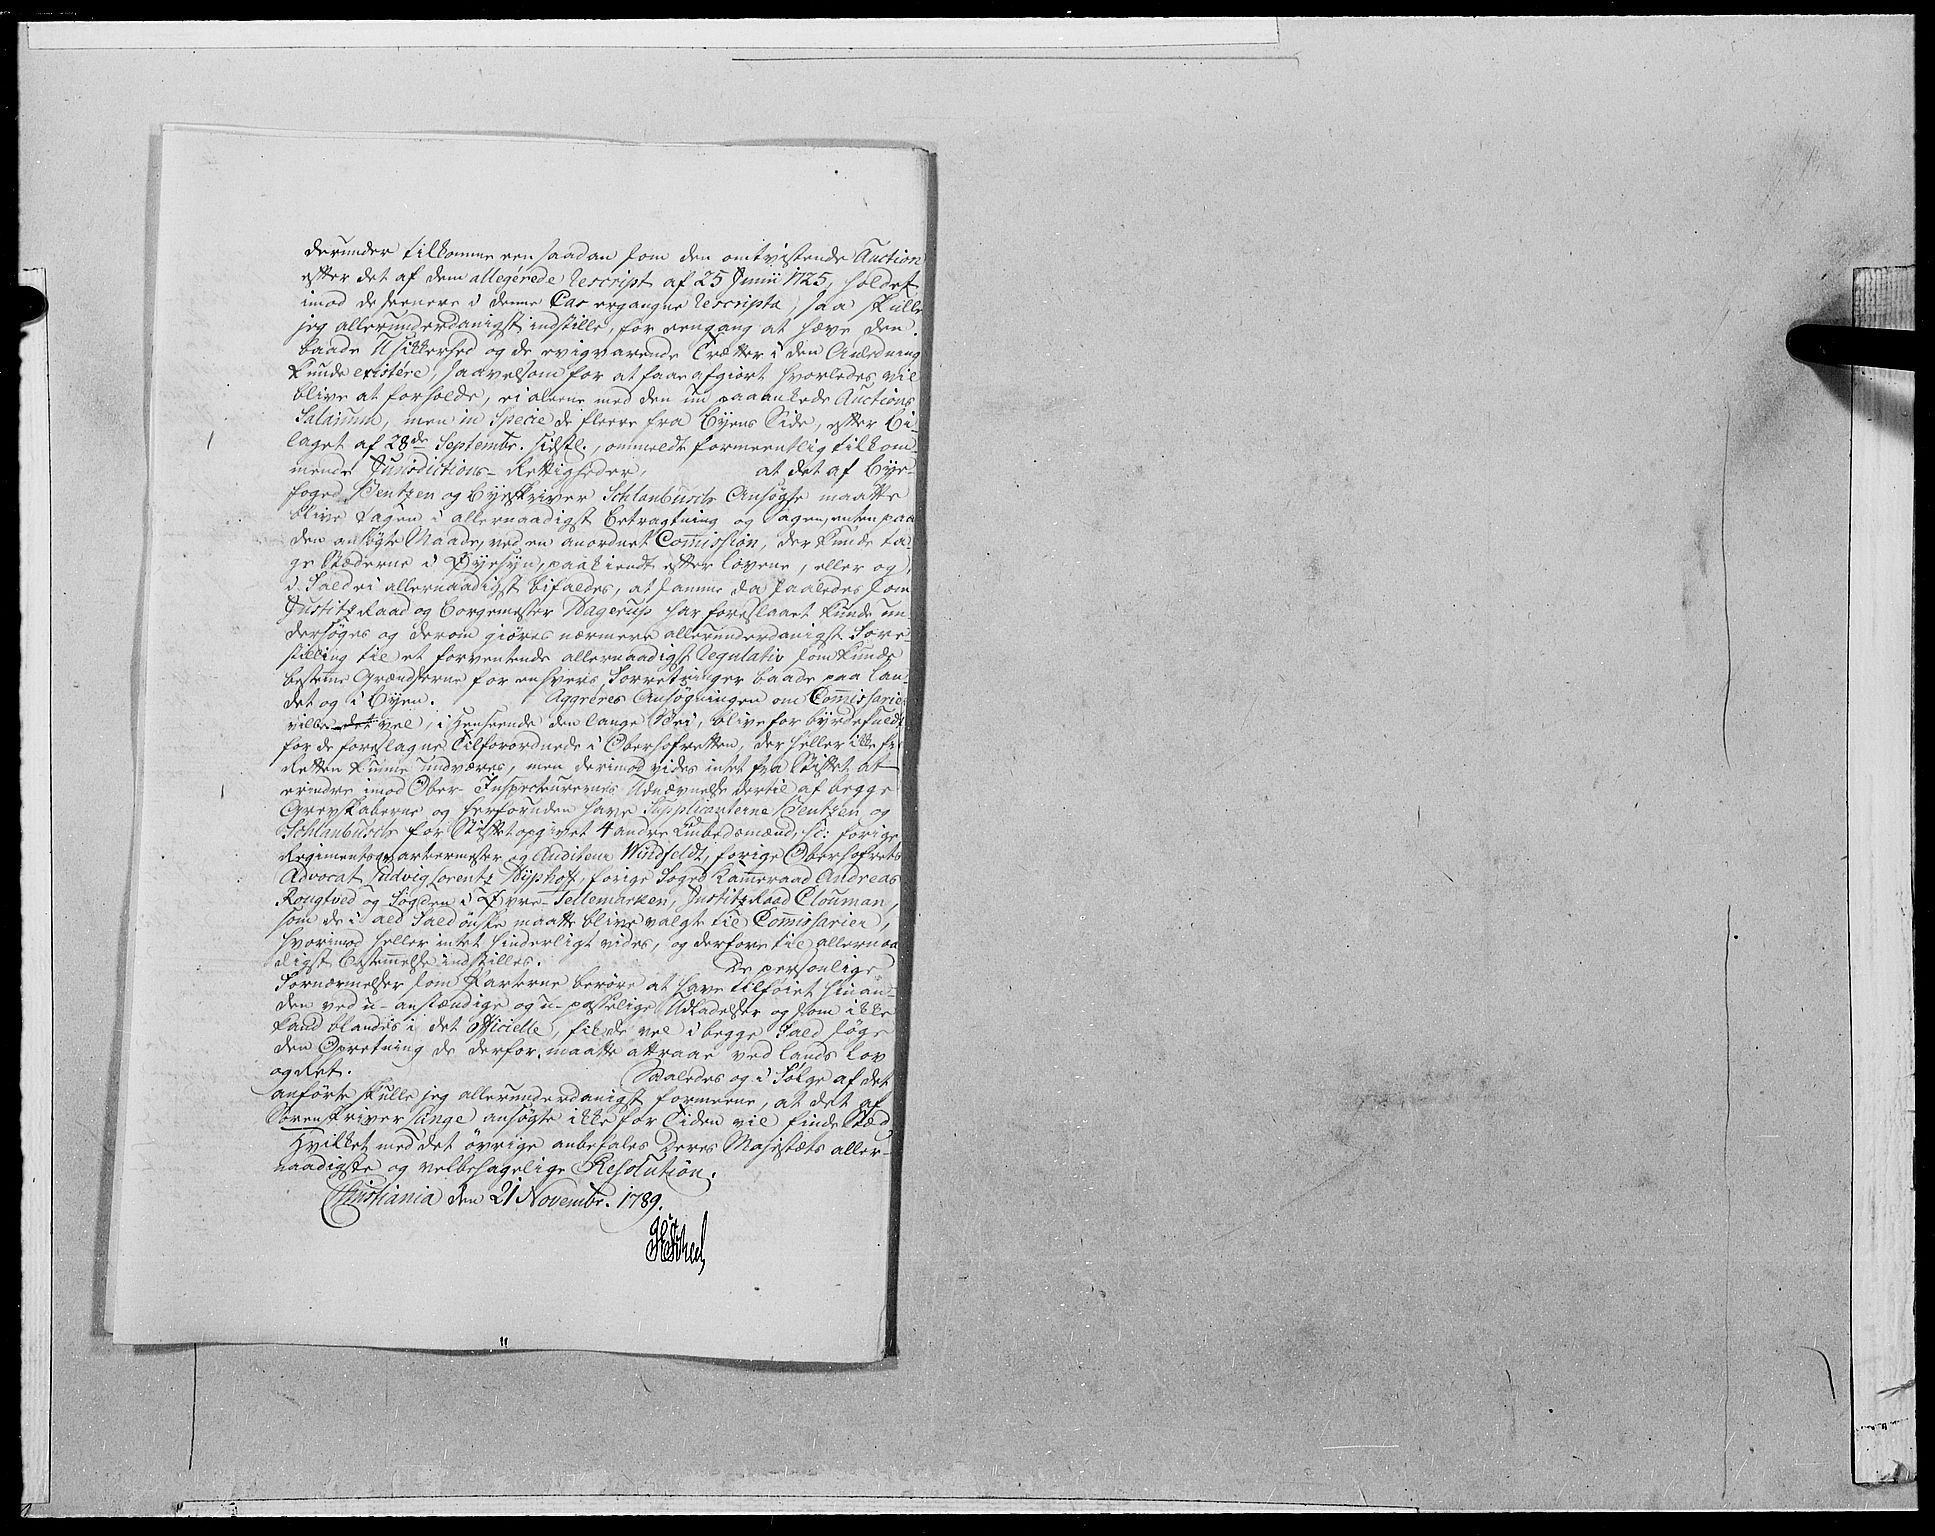 derunder tilkomme een saadan som den omtvistende Auction
efter det af dem allegérede Rescript af 25 Junii 1725, holdet
imod de seenere i denne Cas ergangne Rescripta, saa skulle
jeg allerunderdanigst indstille, for eengang at hæve den
baade Usikkerhed og de evigvarende Trætter i den Anledning
kunde existére, saavelsom for at faae afgiort hvorledes vil
blive at forholde, ei aleene med den nu paaankede Auctions
Salarium, men in Specie de fleere fra Byens Side, efter Bi-
laget af 28de Septembr. sidstl., ommeldte formeentlig tilkom-
mende Jurisdictions-Rettigheder, at det af Bye-
foged Bentzen og Byeskriver Schlanbusch Ansøgte maatte
blive tagen i allernaadigst Betragtning og Sagen, enten paa
den ansøgte Maade, ved en anordnet Commission, der kunde ta-
ge Stæderne i Øyesyn, paakiendt efter Lovene, eller og,
i Fald ei allernaadigst bifaldes, at samme da saaledes som
Justitz Raad og Borgemester Hagerup har foreslaaet kunde un-
dersøges og derom giøres nærmere allerunderdanigst Fore-
stilling til et forventende allernaadigst Regulativ som kunde
bestemme Grændserne for enhvers Forretninger baade paa Lan-
det og i Byen. Aggréres Ansøgningen om Commissarier
ville det vel, i Henseende den lange Vei, blive for byrdefuldt
for de foreslagne Tilforordnede i Oberhofretten, der heller ikke fra
Retten kunne undværes, men derimod vides intet fra Stiftet at
erindre imod Ober-Inspecteurernes Udnævnelse dertil af begge
Grevskaberne og herforuden have Supplicanterne Bentzen og
Schlanbusch for Stiftet opgivet 4 andre Embedsmænd, sc: forige
Regimentsqvarteermester og Auditeur Windfeldt, forige Oberhofrets
Advocat Ludvig Lorentz Nyphoff, forige Foged Kammeraad Andreas
Rougtved og Fogden i Øvre-Tellemarken, Justitz Raad Clouman,
som de i ald Fald ønske maatte blive valgt til Commissarier,
hvorimod heller intet hinderligt vides, og derfore til allernaa-
digst Bestemmelse indstilles. De personlige
Fornærmelser som Parterne berøre at have tilføiet hinan-
den ved u-anstændige og u-passelige Udladelser og som ikke
kand blandes i det officielle, fik de vel i begge Fald søge
den Opretning de derfor maatte attraae ved Lands Lov
og Ret. Saaledes og i Følge af det
anførte skulle jeg allerunderdanigst formeene, at det af
Sorenskriver Lange ansøgte ikke for Tiden vil finde Sted
Hvilket med det øvrige anbefales Deres Majestæts aller-
naadigste og velbehagelige Resolution.
Christiania den 21 Novembr. 1789.